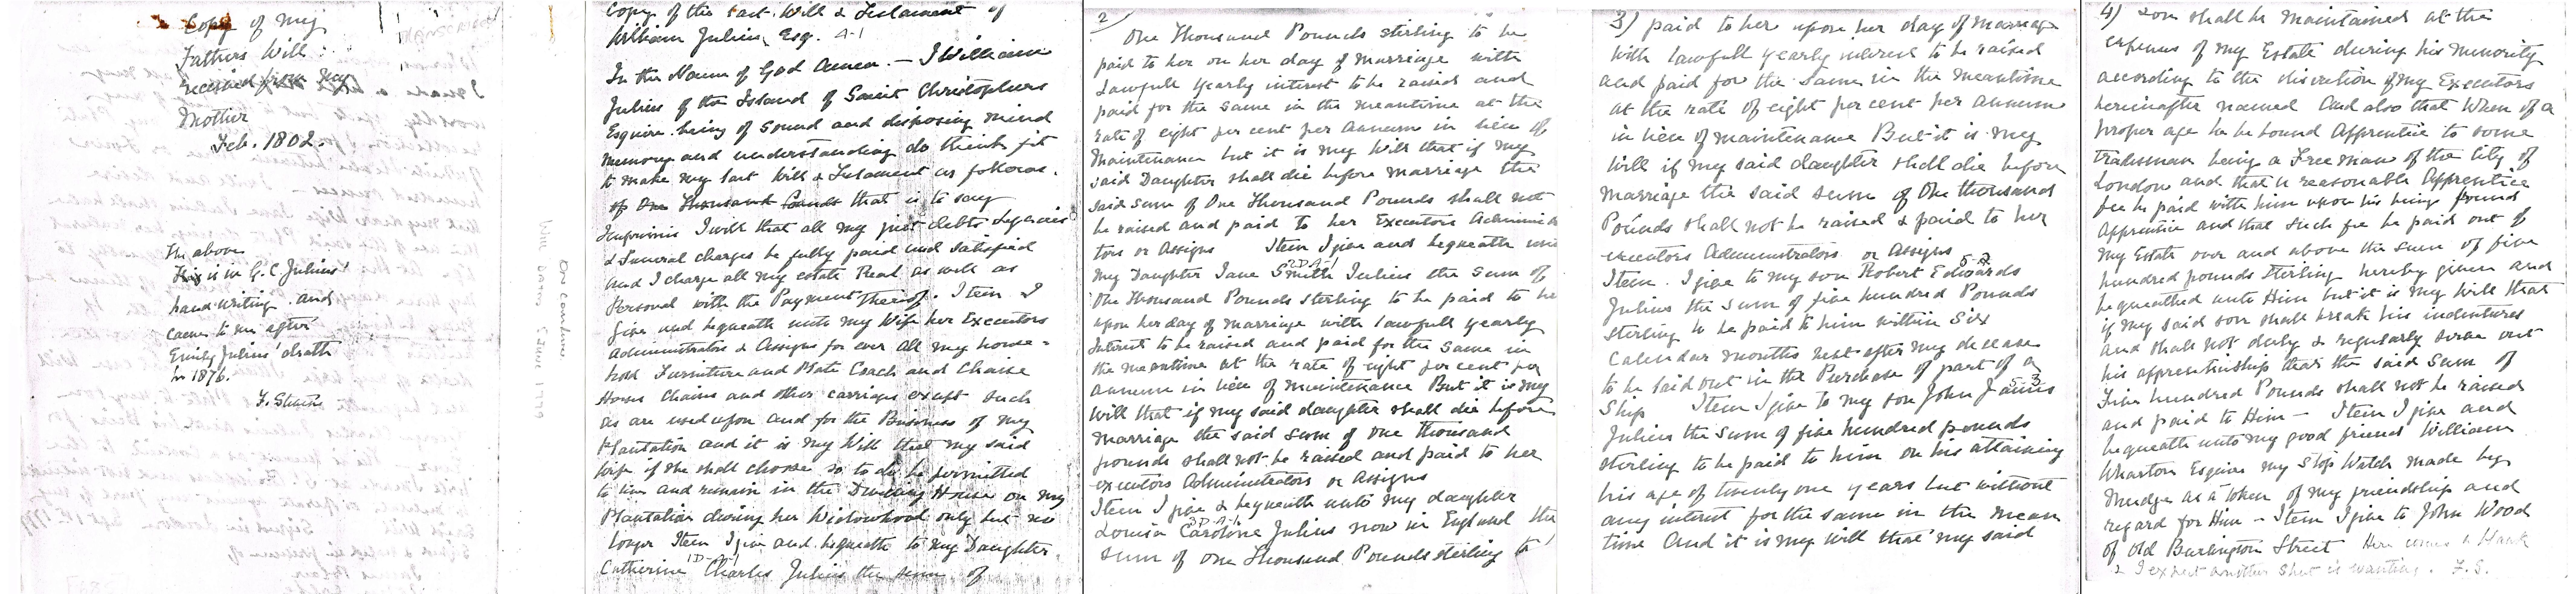 Copy of my
Fathers Will:
received from my
Mother
Feb. 1802.
The above
This is in G. C. Julius'
hand writing and
came to me after
Emily Julius' death
in 1876.
F. Steele
Copy of the Last Will & Testament of
William Julius, Esq. A-1
In the Name of God Amen. — I William
Julius of the Island of Saint Christophers
Esquire being of sound and disposing mind
memory and understanding do think fit
to make my last Will & Testament as follows.
of One Thousand Pounds that is to say
Imprimis I will that all my just debts Legacies
& Funeral charges be fully paid and satisfied
and I charge all my estate Real as well as
Personal with the Payment thereof. Item I
give and bequeath unto my Wife her Executors
Administrators & Assigns for ever all my house-
hold Furniture and Plate Coach and Chaise
Horses Chairs and other carriages except such
as are used upon and for the Business of my
Plantation and it is my Will that my said
wife if she shall choose so to do be permitted
to live and remain in the Dwelling House on my
Plantation during her Widowhood only but no
longer Item I give and bequeath to my Daughter
1D-A-1
Catherine Charles Julius the sum of
2
One Thousand Pounds sterling to be
paid to her on her day of marriage with
Lawfull yearly interest to be raised and
paid for the same in the meantime at the
rate of eight per cent per annum in lieu of
Maintenance but it is my Will that if my
said Daughter shall die before marriage the
said sum of One Thousand Pounds shall not
be raised and paid to her Executors Adminis
tors or Assigns Item I give and bequeath unto
2D-A-1
my Daughter Jane Smith Julius the sum of
One Thousand Pounds sterling to be paid to her
upon her day of marriage with lawfull yearly
Interest to be raised and paid for the same in
the meantime at the rate of eight per cent per
annum in lieu of maintenance But it is my
will that if my said daughter shall die before
marriage the said sum of one thousand
pounds shall not be raised and paid to her
executors Administrators or Assigns
Item I give & bequeath unto my daughter
3D-A-1
Louisa Caroline Julius now in England the
sum of one Thousand Pounds sterling to
3) paid to her upon her day of marriage
with lawfull yearly interest to be raised
and paid for the same in the meantime
at the rate of eight per cent per annum
in lieu of maintenance But it is my
will if my said daughter shall die before
marriage the said sum of One thousand
Pounds shall not be raised & paid to her
executors Administrators or Assigns
Item. I give to my son Robert Edwards
Julius the sum of five hundred Pounds
sterling to be paid to him within Six
Calendar months next after my decease
to be laid out in the Purchase of part of a
Ship Item I give to my son John James
Julius the sum of five hundred pounds
sterling to be paid to him on his attaining
his age of twenty one years but without
any interest for the same in the mean
time And it is my will that my said
4) son shall be maintained at the
expense of my Estate during his minority
according to the discretion of my Executors
hereinafter named And also that When of a
proper age he be bound Apprentice to some
tradesman being a Free man of the City of
London and that a reasonable Apprentice
fee be paid with him upon his being bound
Apprentice and that such fee be paid out of
my Estate over and above the sum of five
hundred pounds Sterling hereby given and
bequeathed unto Him but it is my Will that
if my said son shall break his indentures
and shall not duly & regularly serve out
his apprenticeship that the said Sum of
Five hundred Pounds shall not be raised
and paid to Him — Item I give and
bequeath unto my good friend William
Wharton Esquire my Stop Watch made by
Mudge as a token of my friendship and
regard for Him — Item I give to John Wood
of Old Burlington Street Here comes a blank
& I expect another sheet is wanting. F.S.